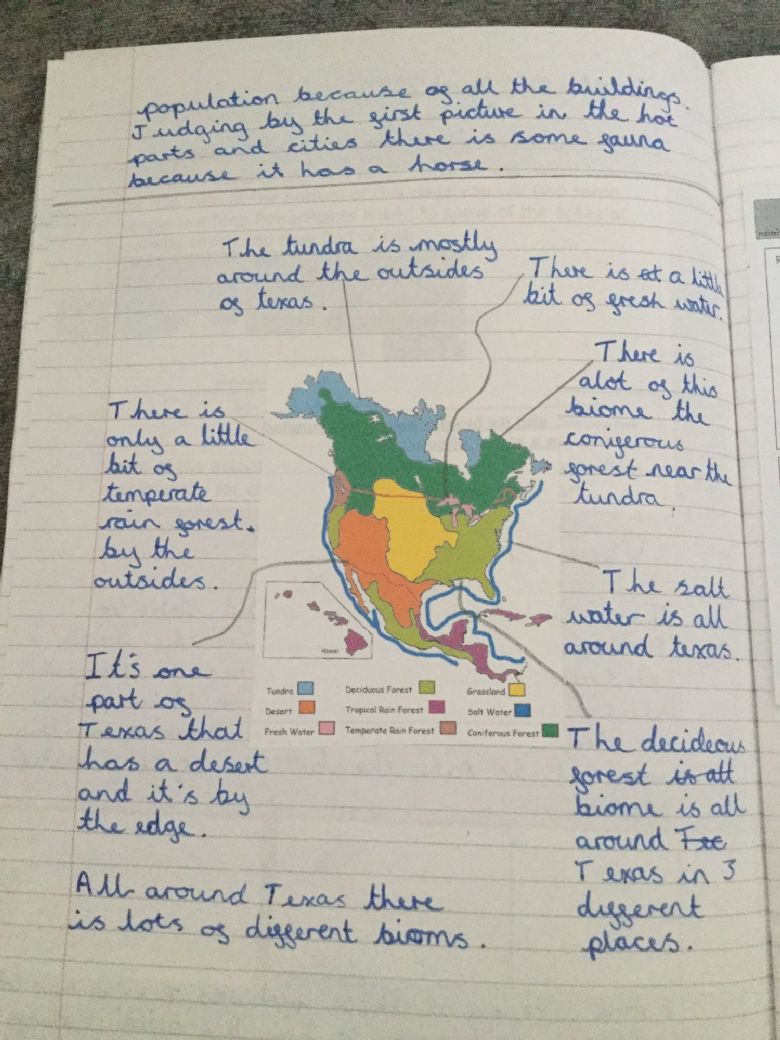 population because of all the buildings.
Judging by the first picture in the hot
parts and cities there is some fauna
because it has a horse.
The tundra is mostly
around the outsides
of texas.
There is at a little
bit of fresh water.
There is
alot of this
biome the
coniferous
forest near the
tundra.
There is
only a little
bit of
temperate
rain forest.
by the
outsides.
The salt
water is all
around texas.
It's one
part of
Texas that
has a desert
and it's by
the edge.
Hawaii
Tundra Deciduous Forest Grassland
Desert Tropical Rain Forest Salt Water
Fresh Water Temperate Rain Forest Coniferous Forest
The decideous
forest is all
biome is all
around
Texas in 3
different
places.
All around Texas there
is lots of different bioms.